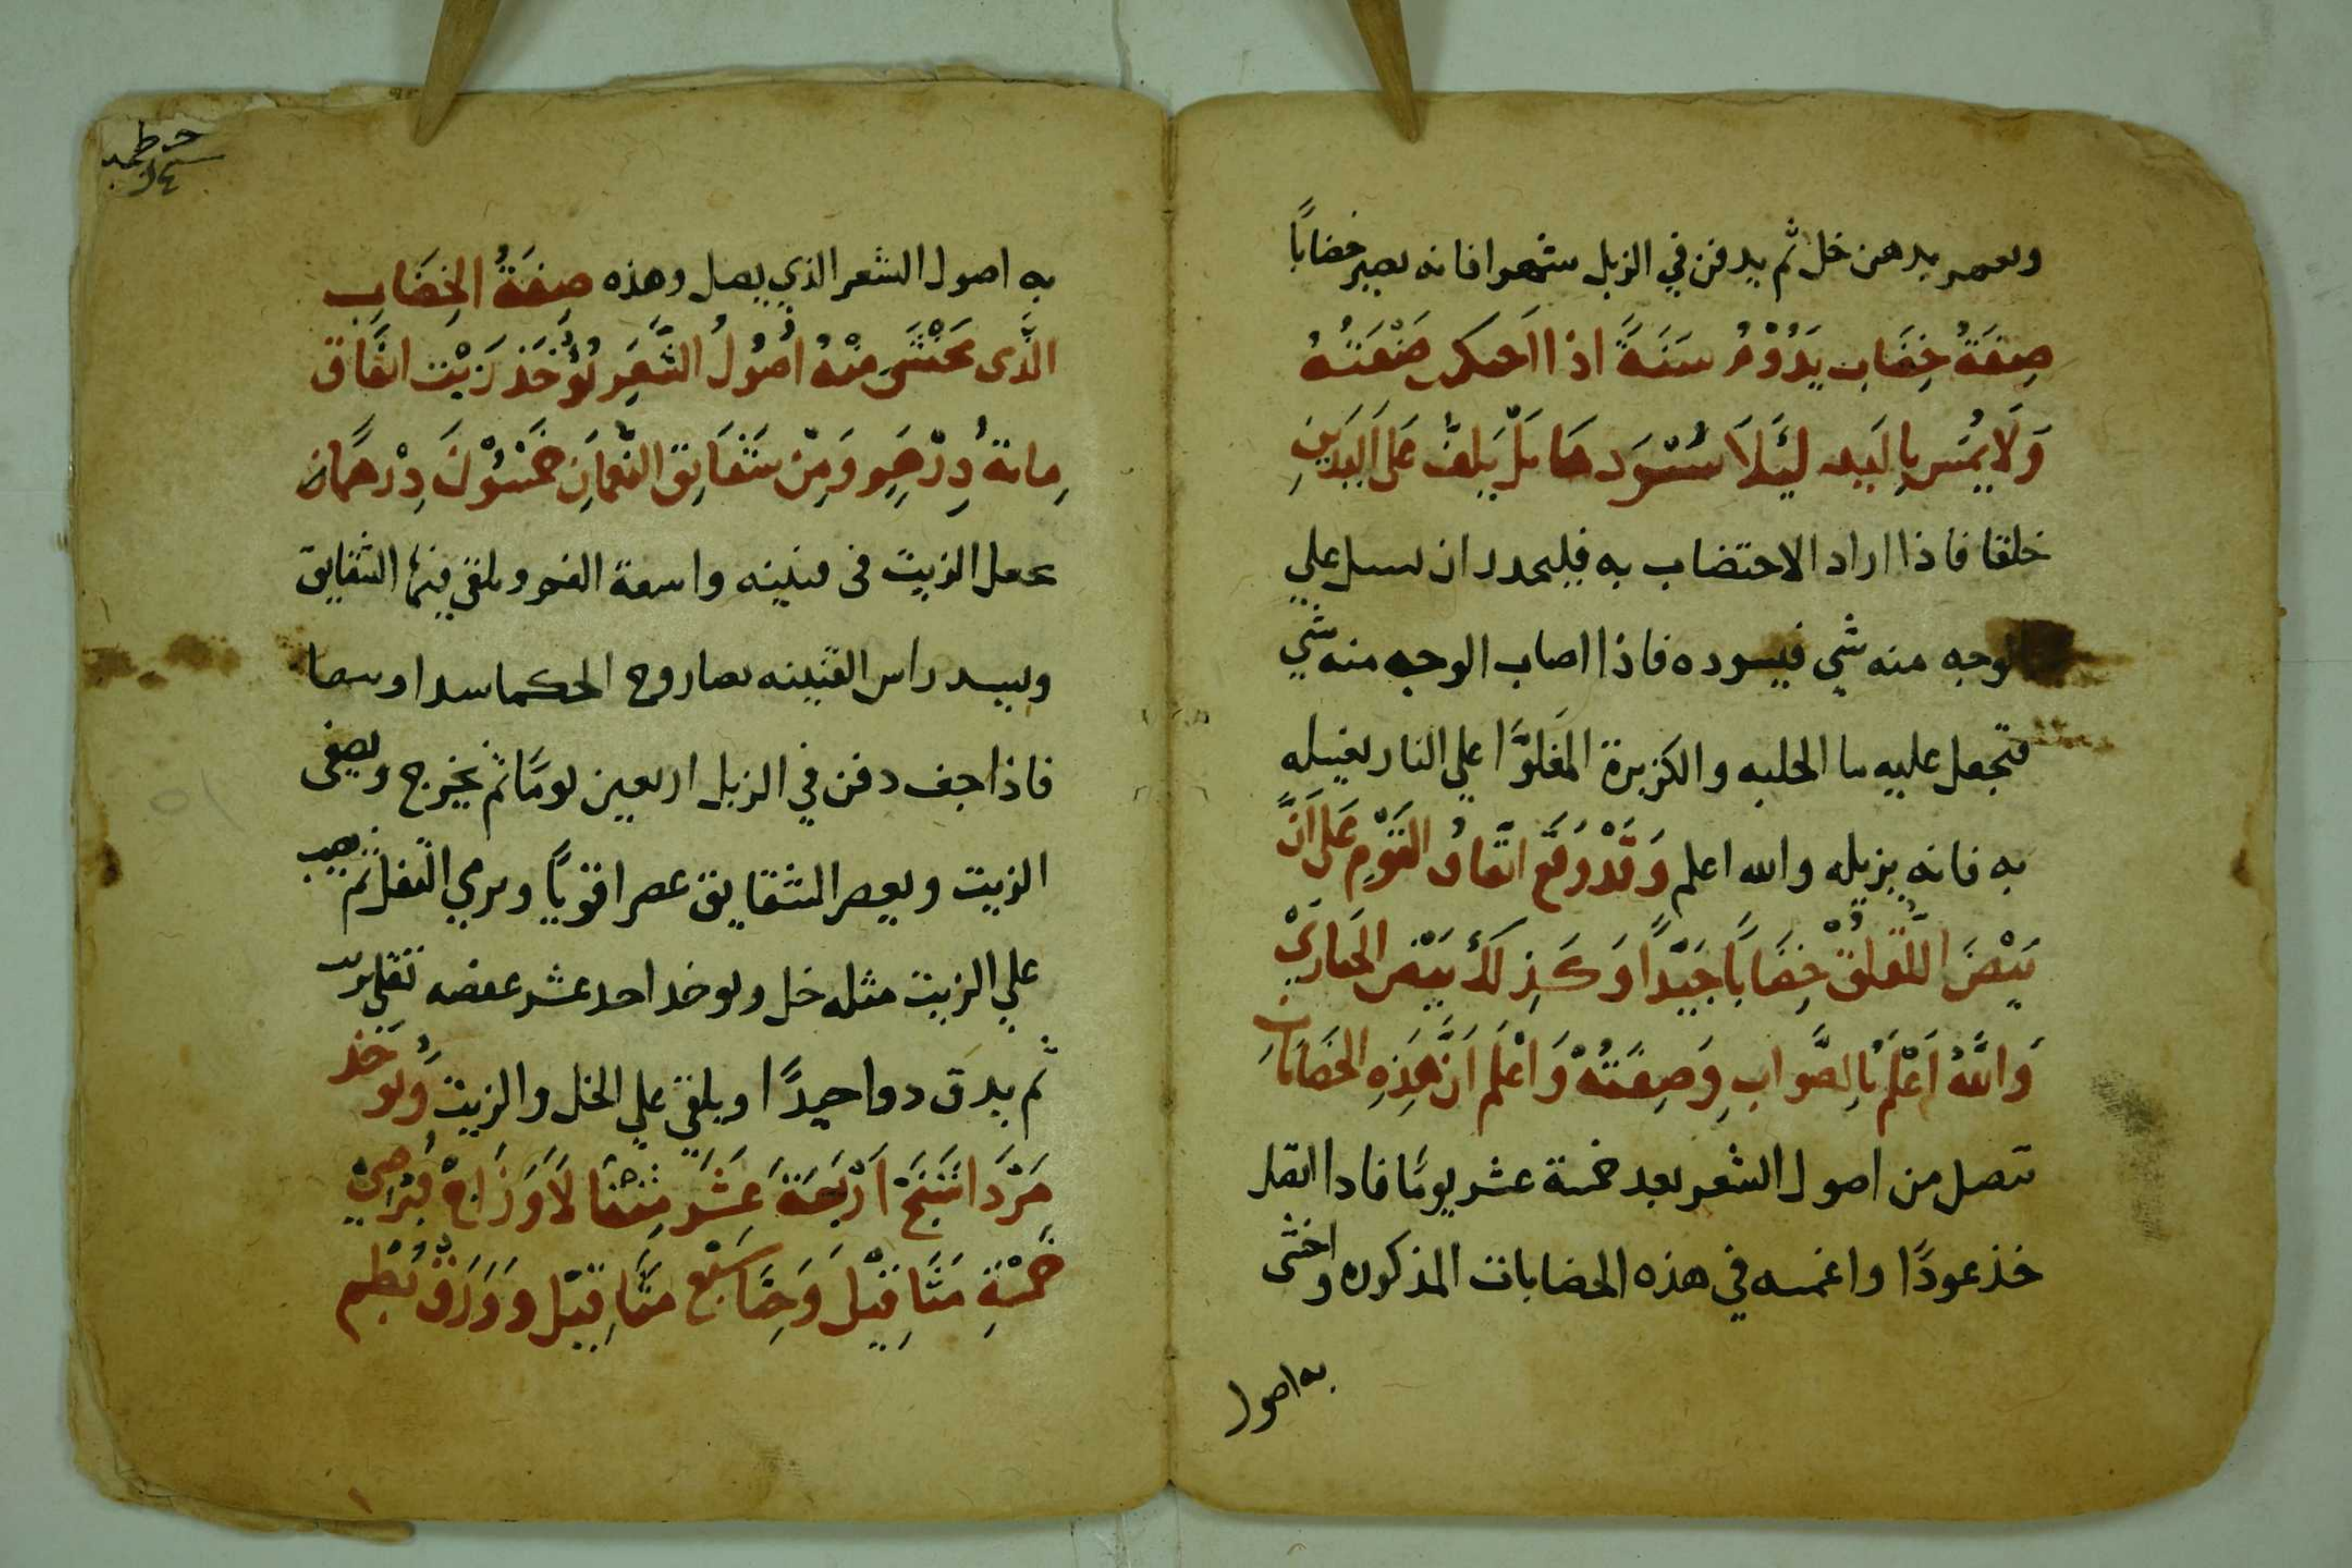 ويعصر بدهن خل ثم يدفن في الزبل شهرا فانه يصير خضاباً
صِفَةُ خِضَاب يَدُوْمُ سَنَةً اذا احكمِ صَنْعَتهُ
وَلَا يُمَس بِاليَد لِئَلاَ يُسَوِدهَا بَلْ يَلف عَلَى اليَدَينِ
خلقا فاذا اراد الاختضاب به فليحدر ان يسيل علي
الوجه منه شي فيسوده فاذا اصاب الوجه منه شي
فتجعل عليه ما الحلبه والكزبرة المَغلوَّا علي النار يغسله
به فانه يزيله والله اعلم وَقَدْ وَقَعَ اتفاقُ القَوْمِ عَلَى اَنَّ
بَيْضَ اللَّقلقْ خِضَابًا جَيّداً وَكَذِلكَ بَيْض الحَبَارَيْ
وَاللَّهُ اَعْلَمُ بِالصَّوابِ وَصِفَتُهْ وَاعْلَم اَنَّ هَذِهِ الخضَابَاتِ
تنصل من اصول الشعر بعد خمسة عشر يومًا فاذا انتقل
خذ عودًا واغمسه في هذه الخضابات المذكوره واخشى
به اصول
به اصول الشعر الذي يصل وهذه صِفَةُ الخِضَابِ
الَّذى يحْتَشى مِنْهُ اصُولُ الشَّعَرِ يُؤْخَذ زَيْت انفَاق
مِائةُ دِرْهَمٍ وَمِنْ شَقَايق النُّعمَانِ خَمْسُوْنَ دِرْهَمًا
يجعل الزيت فى قنينه واسعة الفم ويلقي فيها الشقايق
ويسد راس القنينه بصاروج الحكما سدا وسطا
فاذا جف دفن في الزبل اربعين يومًا ثم يخرج ويصفى
الزيت ويعصر الشقايق عصرا قويًا ويرمي الثفل ثم يصب
علي الزيت مثله خل ويوخد احد عشر عفصه تقلي بزيت
ثم يدق دوا جيدًا ويلقي علي الخل والزيت وَيُوخَذ
مَرْدَاسَنَج اَرْبَعَةَ عَشَرَ مِثقَالاَ وَزَاجْ قُبْرُصِيْ
خَمْسَةِ مَثَاقِيْلَ وَحِنَّا سَبْع مَثَاقِيْل ووَرَقْ نُظم